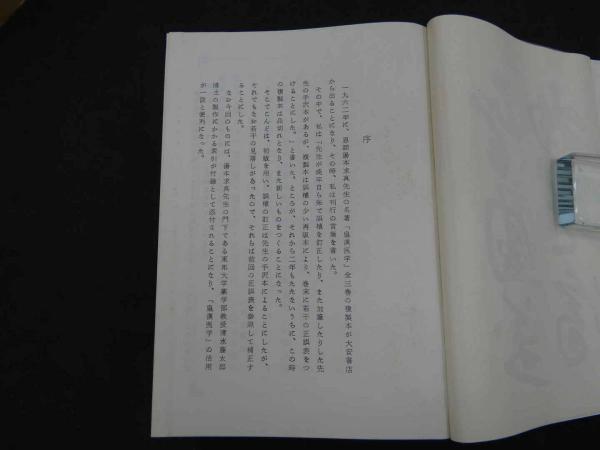 序
一九六二年に、恩師湯本求真先生の名著「皇漢医学」全三巻の複製本が大安書店
から出ることになり、その時、私は刊行の言葉を書いた。
その中で、私は「先生が後年自ら朱で誤植を訂正したり、また加筆したりした先
生の手沢本があるが、複製本は誤植の少い再版本により、巻末に若干の正誤表をつ
けることにした。」と書いた。ところが、それから二年もたたないうちに、この時
の複製本は品切れとなり、また新しいものをつくることになった。
そこでこんどは、初版を用い、誤植の訂正は先生の手沢本によることにしたが、
それでもなお若干の見落しがあったので、それらは前回の正誤表を参照して補正す
ることにした。
なお今回のものには、湯本求真先生の門下である東邦大学薬学部教授清水藤太郎
博士の製作にかかる索引が付録として添付されることになり、「皇漢医学」の活用
が一段と便利になった。